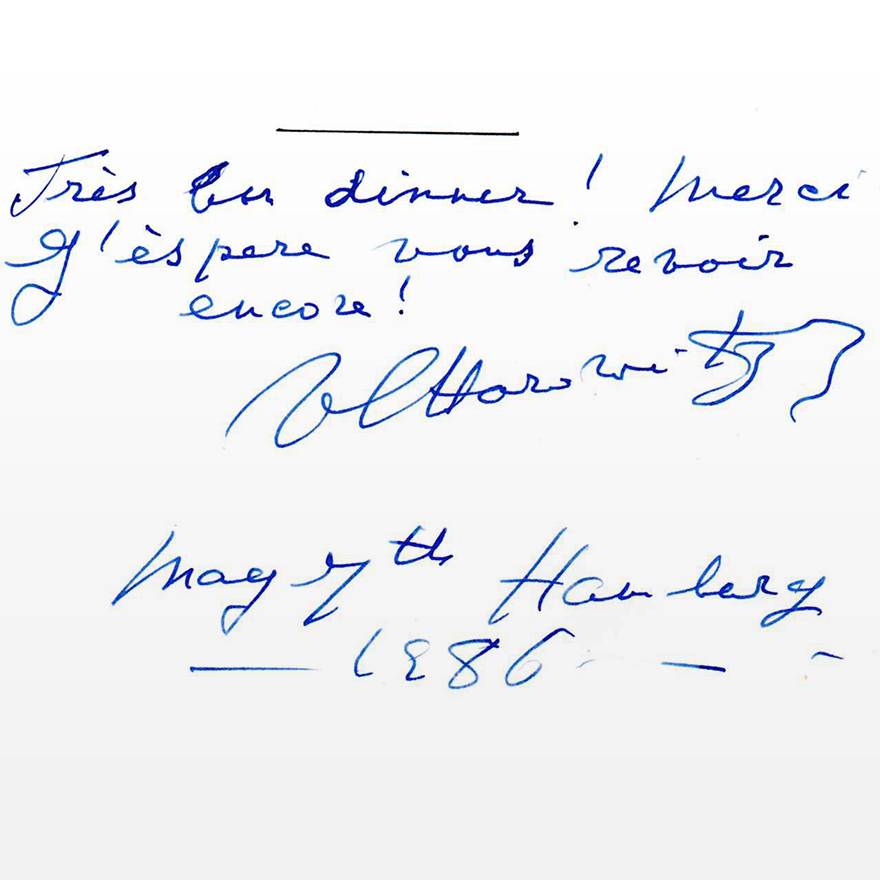 Très bon dinner! Merci
J'èspere vous revoir
encore!
Vl Horowitz
May 7th Hamburg
— 1986 — -